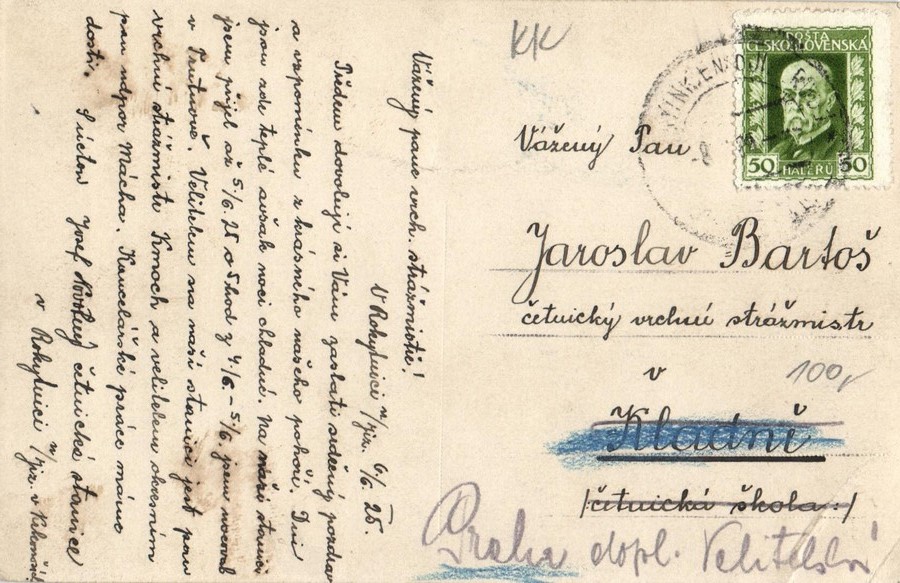 Vážený pane vrch. strážmistře!
V Rokytnici n/Jiz. 6/6. 25.
Předem dovoluji si Vám zaslati srdečný pozdrav
a vzpomínku z krásného našeho pohoří. Dni
jsou zde teplé avšak noci chladné. Na naši stanici
jsem přijel až 5/6. 25 o 5 hod z 4/6. - 5/6 jsem nocoval
v Trutnově. Velitelem na naší stanici jest pan
vrchní strážmistr Kmoch a velitelem okresním
pan ndpor Mácha. Kancelářské práce máme
dosti. S úctou Josef četnická stanice
v Rokytnici n/Jiz. v
KK
POŠTA
ČESKOSLOVENSKÁ
50 HALÉŘŮ 50
Vážený Pan
Jaroslav Bartoš
četnický vrchní strážmistr
v
100,
Kladně
/četnická škola:/
Praha dopl. Velitelství